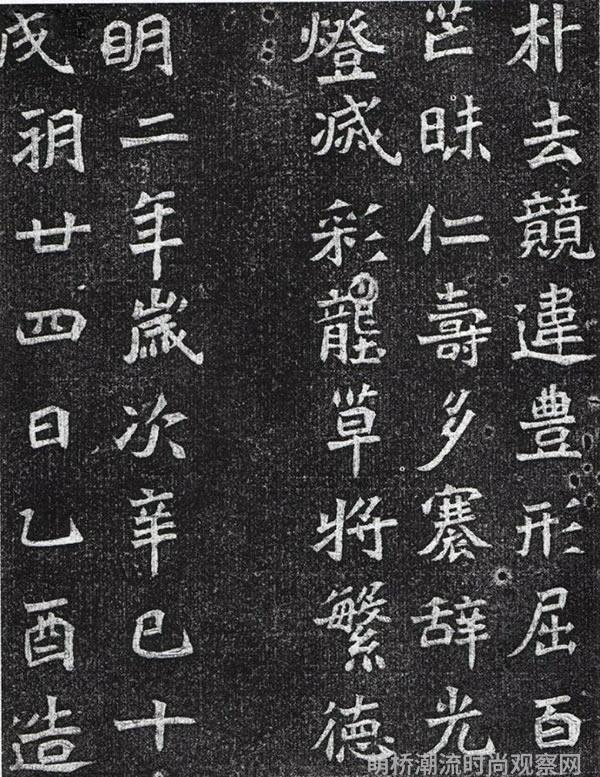 朴去競違豊形屈百
芒昧仁壽多褰辞光
燈滅彩壟草将繁德
明二年歲次辛巳十
戌朔廿四日乙酉造
明桥潮流时尚观察网